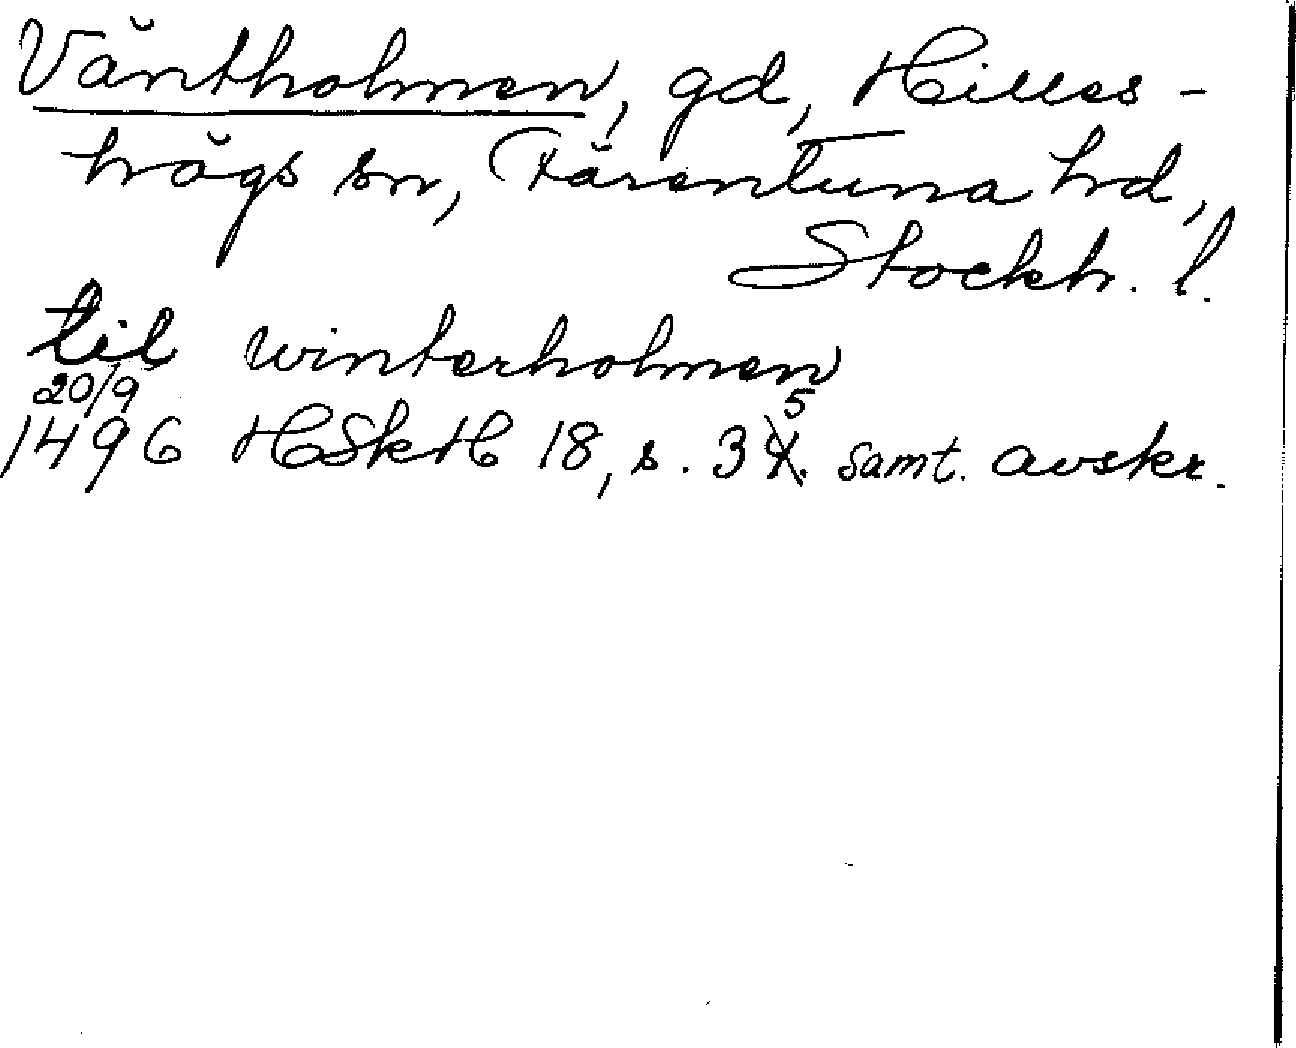 Väntholmen, gd, Hilles-
högs sn, Färentuna hd,
Stockh. l.
til winterholmen
20/9
1496 HSkH 18, s. 35. samt. avskr.